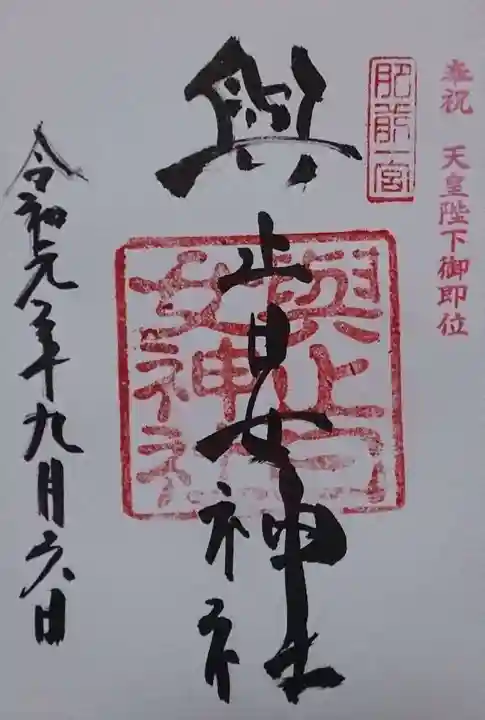 奉祝 天皇陛下御即位
肥前一宮
與止日女神社
與止日
女神社
令和元年九月六日